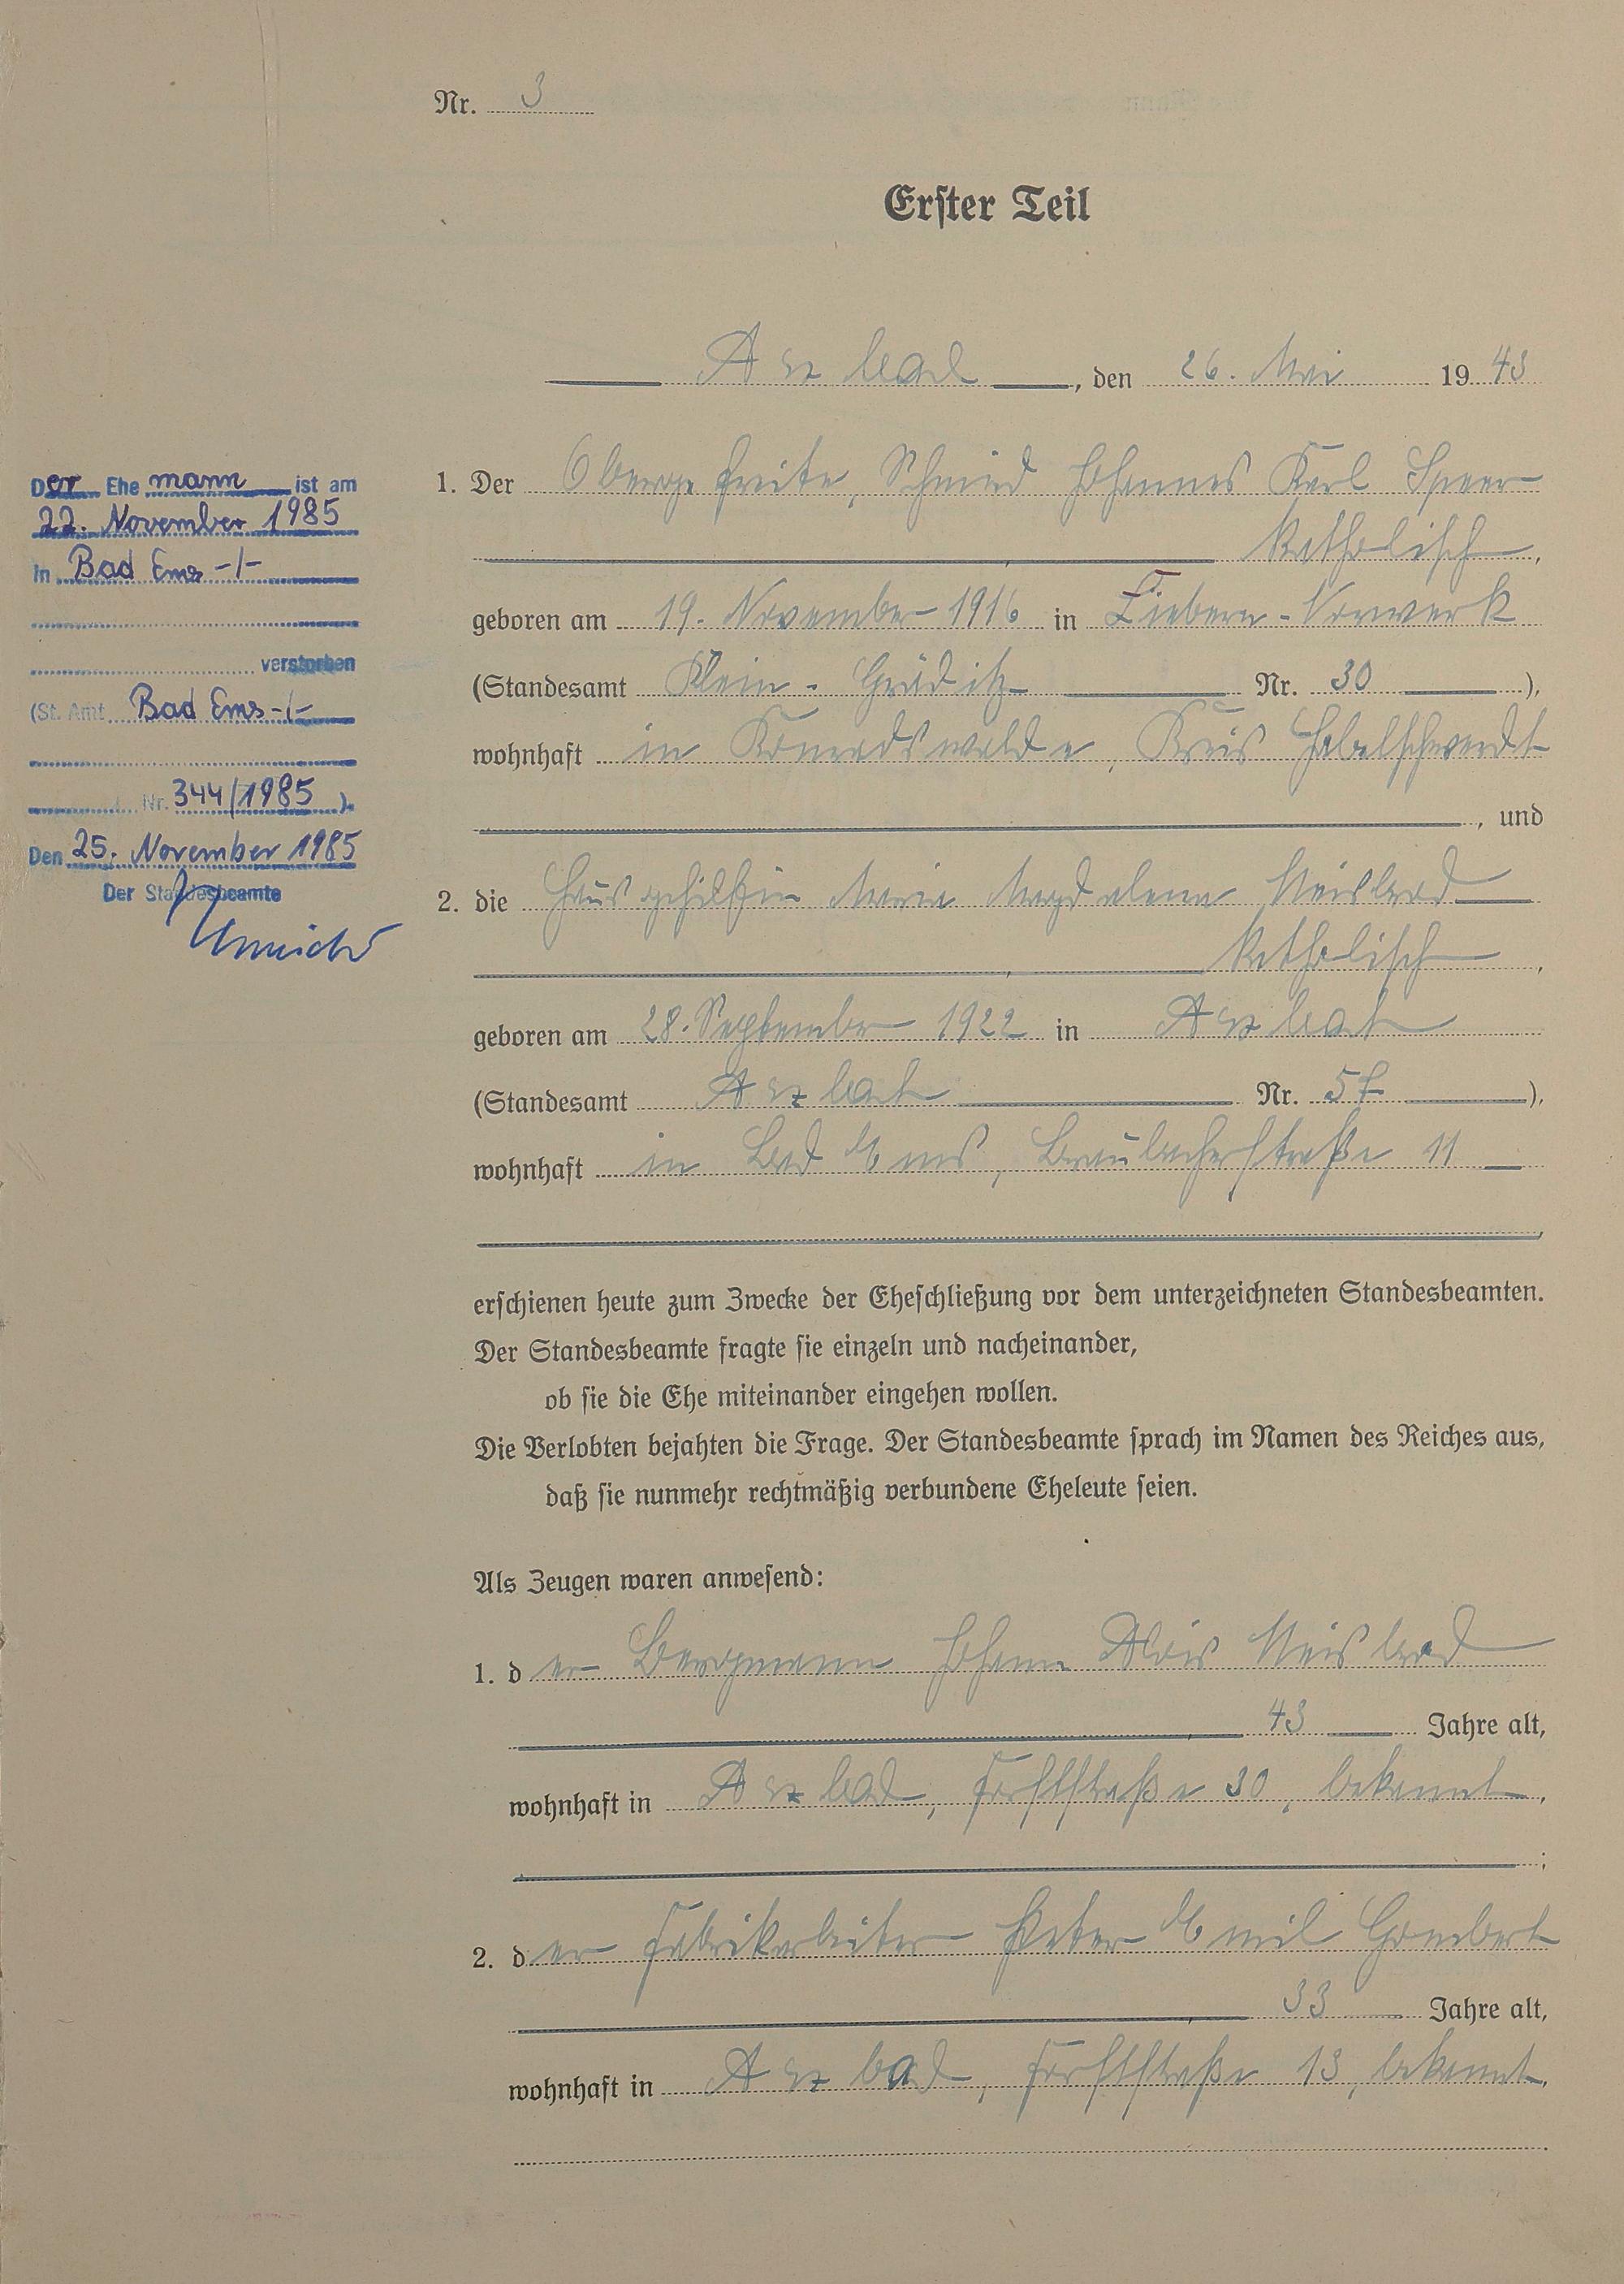 Nr. 3
Erster Teil
Arzbach, den 26. Mai 1943
1. Der Obergefreite, Schmied Johannes Karl Speer
katholisch,
geboren am 19. November 1916 in Liebern-Vorwerk
(Standesamt Klein-Gräditz Nr. 30),
wohnhaft in Konradswalde, Kreis Habelschwerdt
, und
2. die Hausgehilfin Maria Magdalena
katholisch,
geboren am 28. September 1922 in Arzbach
(Standesamt Arzbach Nr. 57),
wohnhaft in Bad Ems, Braubacherstraße 11
erschienen heute zum Zwecke der Eheschließung vor dem unterzeichneten Standesbeamten.
Der Standesbeamte fragte sie einzeln und nacheinander,
ob sie die Ehe miteinander eingehen wollen.
Die Verlobten bejahten die Frage. Der Standesbeamte sprach im Namen des Reiches aus,
daß sie nunmehr rechtmäßig verbundene Eheleute seien.
Als Zeugen waren anwesend:
1. der Bergmann Johann Alois
43 Jahre alt,
wohnhaft in Arzbach, Forststraße 30, bekannt,
;
2. der Fabrikarbeiter Peter Emil Gombert
33 Jahre alt,
wohnhaft in Arzbach, Forststraße 13, bekannt.
Der Ehemann ist am
22. November 1985
in Bad Ems -/-
verstorben
(St. Amt Bad Ems -/-
Nr. 344/1985).
Den 25. November 1985
Der Standesbeamte